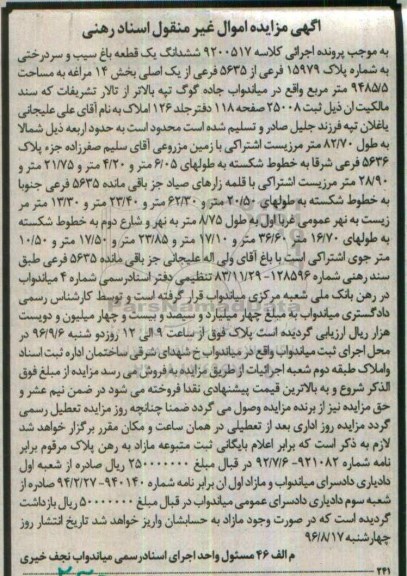 آگهی مزایده اموال غیر منقول اسناد رهنی
به موجب پرونده اجرائی کلاسه ۹۲۰۰۵۱۷ ششدانگ یک قطعه باغ سیب و سردرختی
به شماره پلاک ۱۵۹۷۹ فرعی از ۵۶۳۵ فرعی از یک اصلی بخش ۱۴ مراغه به مساحت
۹۴۸۵/۵ متر مربع واقع در میاندواب جاده گوگ تپه بالاتر از تالار تشریفات که سند
مالکیت ان ذیل ثبت ۲۵۰۰۸ صفحه ۱۱۸ دفتر جلد ۱۲۶ املاک به نام آقای علی علیجانی
یاغلان تپه فرزند جلیل صادر و تسلیم شده است محدود است به حدود اربعه ذیل شمالا
به طول ۸۲/۷۰ متر مرزیست اشتراکی با زمین مزروعی آقای سلیم صفرزاده جزء پلاک
۵۶۳۶ فرعی شرقا به خطوط شکسته به طولهای ۶/۰۵ متر و ۴/۲۰ متر و ۲۱/۷۵ متر و
۲۸/۹۰ متر مرزیست اشتراکی با قلمه زارهای صیاد جز باقی مانده ۵۶۳۵ فرعی جنوبا
به خطوط شکسته به طولهای ۲۰/۵۰ متر و ۶۲/۳۰ متر و ۲۳/۴۰ متر و ۱۳/۳۰ متر مر
زیست به نهر عمومی غربا اول به طول ۸/۷۵ متر به نهر و شارع دوم به خطوط شکسته
به طولهای ۱۶/۷۰ متر و ۳۶/۶۰ متر و ۱۷/۱۰ متر و ۲۳/۸۵ متر و ۱۷/۵۰ متر و ۱۰/۵۰
متر جوی اشتراکی است با باغ آقای ولی اله علیجانی جز باقی مانده ۵۶۳۵ فرعی طبق
سند رهنی شماره ۱۲۸۵۹۶- ۸۳/۱۱/۲۹ تنظیمی دفتر اسنادرسمی شماره ۴ میاندواب
در رهن بانک ملی شعبه مرکزی میاندواب قرار گرفته است و توسط کارشناس رسمی
دادگستری میاندواب به مبلغ چهار میلیارد و سیصد و بیست و چهار میلیون و دویست
هزار ریال ارزیابی گردیده است پلاک فوق از ساعت ۹ الی ۱۲ روز دو شنبه ۹۶/۹/۶ در
محل اجرای ثبت میاندواب واقع در میاندواب خ شهدای شرقی ساختمان اداره ثبت اسناد
واملاک طبقه دوم شعبه اجرائیات از طریق مزایده به فروش می رسد مزایده از مبلغ فوق
الذکر شروع و به بالاترین قیمت پیشنهادی نقدا فروخته می شود در ضمن نیم عشر و
حق مزایده نیز از برنده مزایده وصول می گردد ضمنا چنانچه روز مزایده تعطیل رسمی
گردد مزایده روز اداری بعد از تعطیلی در همان ساعت و مکان مقرر برگزار خواهد شد
لازم به ذکر است که برابر اعلام بایگانی ثبت متبوعه مازاد به رهن پلاک مرقوم برابر
نامه شماره ۹۲۱۰۸۲- ۹۲/۷/۶ در قبال مبلغ ۲۵۰۰۰۰۰۰۰ ریال صادره از شعبه اول
دادیاری دادسرای میاندواب و مازاد اول ان برابر نامه شماره ۹۴۰۱۴۰- ۹۴/۲/۲۷ صادره از
شعبه سوم دادیاری دادسرای عمومی میاندواب در قبال مبلغ ۵۰۰۰۰۰۰۰ ریال بازداشت
گردیده است که در صورت وجود مازاد به حسابشان واریز خواهد شد تاریخ انتشار روز
چهارشنبه ۹۶/۸/۱۷
م الف ۴۶ مسئول واحد اجرای اسنادرسمی میاندواب نجف خیری
۲۴۱